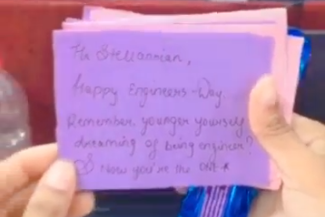 Hi Stellannian,
Happy Engineers Day
Remember, younger yourself
dreaming of being engineer?
Now you're the ONE